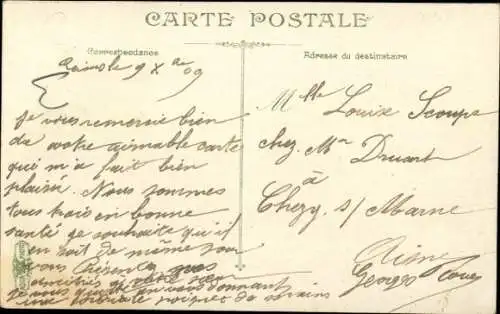 CARTE POSTALE
Correspondance
Adresse du destinataire
le 9 X 09
Je vous remercie bien
de votre aimable carte
qui m'a fait bien
plaisir. Nous sommes
tous trois en bonne
santé je souhaite qu'il
en soit de même pour
vous
votre
je vous quitte en vous donnant
une poignée de mains
Mlle Louise
chez Mr Druart
à
Chezy s/ Marne
Aisne
Georges